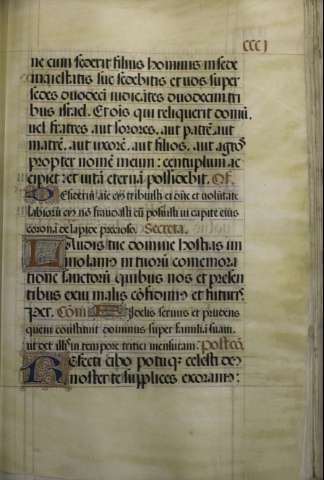 CCCI
ne cum sederit filius hominis i sede
maiestatis sue sedebitis et vos super
sedes duodeci iudicātes duodecim tri
bus israel. Et ois qui reliquerit domū.
vel fratres. aut sorores. aut patrē. aut
matrē. aut uxorē. aut filios. aut agros
propter nomē meum: centuplum ac
cipiet: et vitā eternā possidebit. Of.
Desideriū aīe ei tribuisti et voluntate
labiorū ei nō fraudasti eū posuisti in capite eius
coronā de lapide precioso. Secreta.
tuis domine hostias im
molam in tuorū comemora
tione sanctorū quibus nos et presen
tibus exui malis cōfidimus et futuris
Com Fidelis servus et prudens
quem constituit dominus super familiā suam.
ut det illis in tempore tritici mensuram: Postcō
Refecti cibo potuq; celesti de9
noster te supplices exoram9: